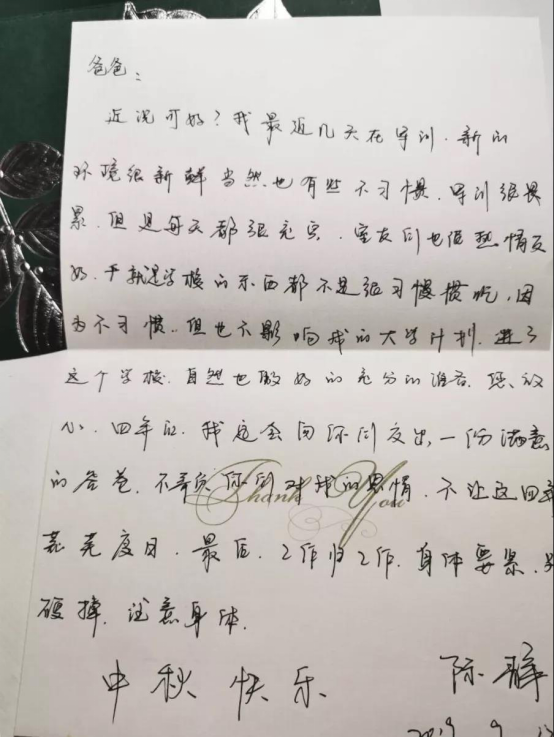 爸爸：
近况可好？我最近几天在军训．新的
环境很新鲜当然也有些不习惯．军训很
累．但是每天都很充实．室友们也很热情友
好．学校的东西都不是很习惯吃，因
为不习惯．但也不影响我的大学计划．进了
这个学校．自然也做好的充分的准备．您放
心．四年后．我定会向你们交出一份满意
的答卷．不辜负你们对我的恩情．不让这四年
荒度日．最后．工作归工作．身体要紧．别
硬撑．注意身体．
Thank You
中秋快乐
陈
2019 9